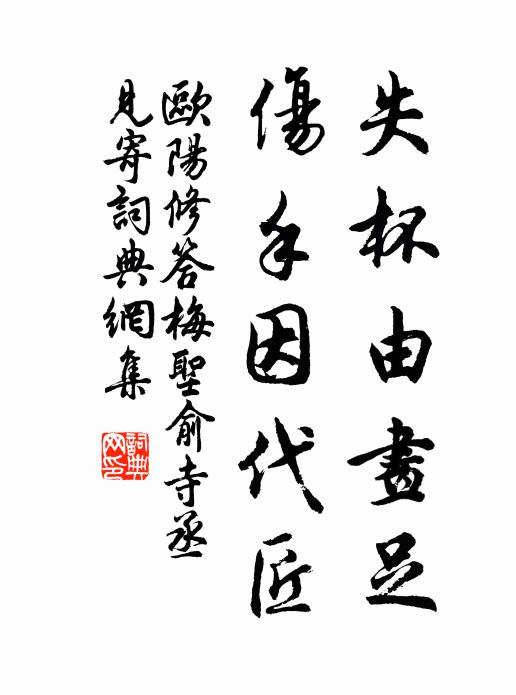 失杯由畫足
傷手因代匠
歐陽修答梅聖俞寺丞
見寄詞典網集
詞典網印